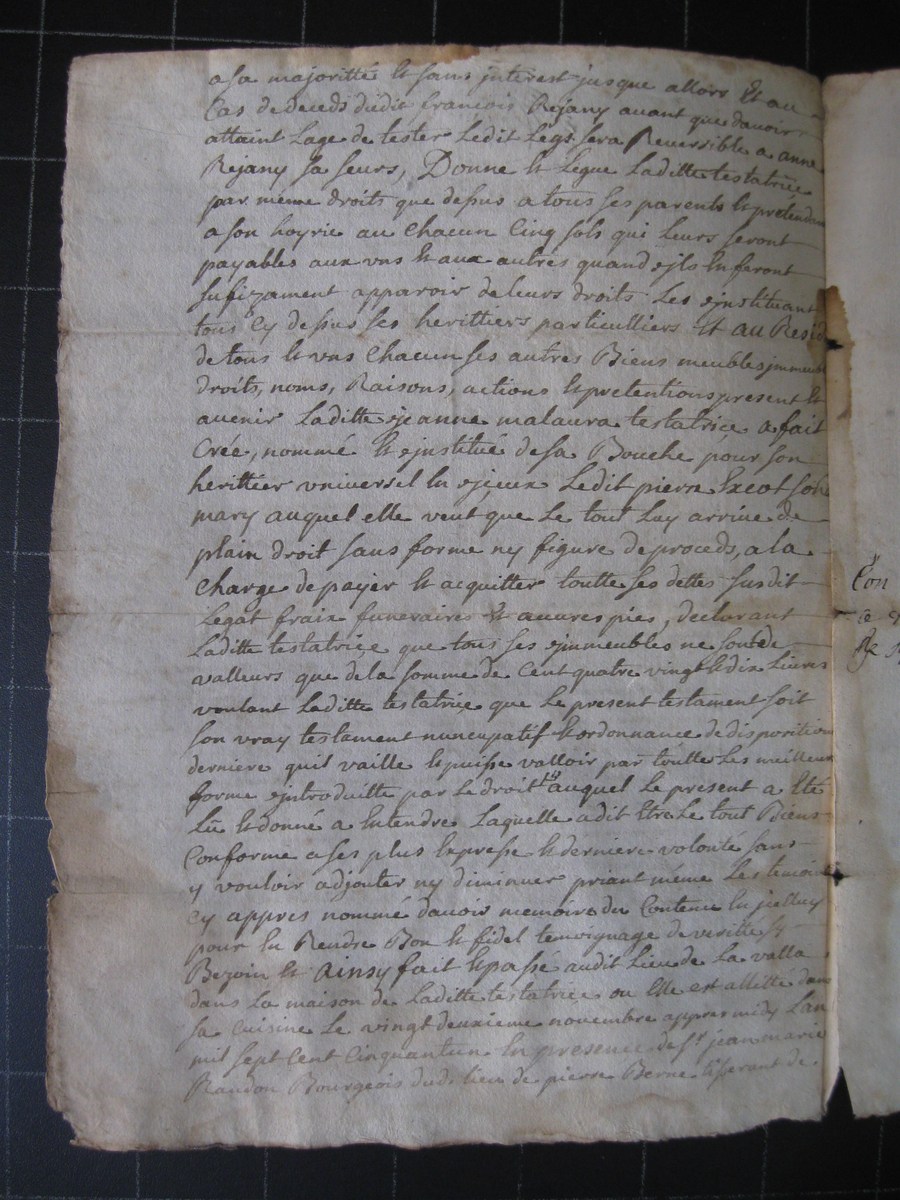 a sa majoritté et sans jnterest jusque allors et au
Cas de deceds dudit françois Rejany auant que dauoir
attaint Lage de tester Ledit Legs sera Reuersible a anne
Rejany sa seurs, Donne et Legue Laditte testatrice
par même droits que dessus a tous ses parents et pretendants
a son hoyrie au Chacun Cinq sols qui Leurs seront
payables aux vns et aux autres quand ejls en feront
sufizament apparoir de leurs droits Les ejnstituant
tous Cy dessus ses herittiers particulliers et au Resid
de tous et vns Chacun ses autres Biens meubles jmmeub
droits, noms, Raisons, actions et pretentions present et
auenir Laditte ejeanne malaura testatrice a fait
Créé, nommé et ejnstitué de sa Bouche pour son
herittier vniuersel en ejceux Ledit pierre son
mary auquel elle veut que Le tout Luy arriue de
plain droit sans forme ny figure de proceds, a la
Charge de payer et acquitter toutte ses dettes susdit
Legat fraix funeraires et aeuures pies, declarant
Laditte testatrice que tous ses ejmmeubles ne sont de
valleurs que de la somme de Cent quatre vingt et dix Liures
voulant Laditte testatrice que Le present testament soit
son vray testament nuncupatif et ordonnance de disposition
derniere quil vaille et puisse valloir par toutte Les meilleurs
forme ejntroduitte par Le droit auquel Le present a eté
Lû et donné a entendre Laquelle a dit etre Le tout Biens
Conforme a ses plus expresse et derniere volonté sans
y vouloir adjouter ny diminuer priant même Les temoins
Cy appres nommé dauoir memoire du Contenu en jcelluy
pour en Rendre Bon et fidel temoignage de verité sy
Bezoin et Ainsy fait et passé audit Lieu de La valla
dans La maison de Laditte testatrice ou elle est allitté dans
sa Cuisine Le vingt deuxieme nouembre appres midy Lan
mil sept Cent Cinquantun en presence de sr jean marie
Randon Bourgeois dudt lieu de pierre Berne tisserant de
Con